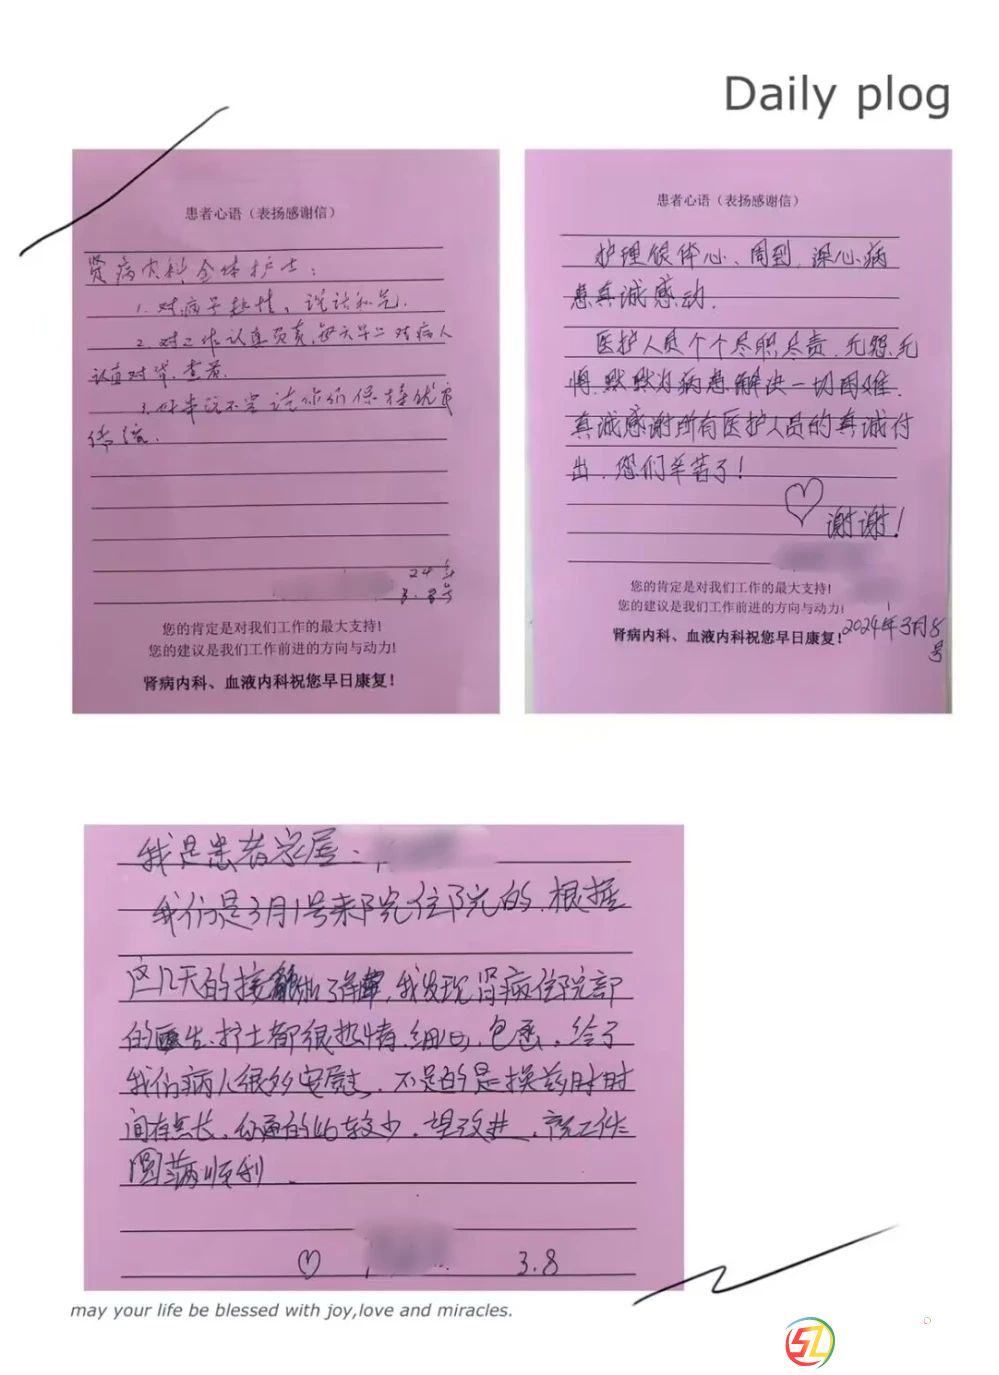 Daily plog
患者心语（表扬感谢信）
肾病内科全体护士：
1. 对病子热情，说话和气.
2. 对工作认真负责,每天早上对病人
认真对待,查房.
3. 好事说不完 请你们保持优良
传统.
24年
3.8号
您的肯定是对我们工作的最大支持!
您的建议是我们工作前进的方向与动力!
肾病内科、血液内科祝您早日康复!
患者心语（表扬感谢信）
护理很体心、周到,深心病
患真诚感动.
医护人员个个尽职尽责,无怨无
悔,默默为病患解决一切困难.
真诚感谢所有医护人员的真诚付
出,您们辛苦了!
谢谢!
您的肯定是对我们工作的最大支持!
您的建议是我们工作前进的方向与动力!
肾病内科、血液内科祝您早日康复!
2024年3月8
号
我是患者家属：
我们是3月1号来院住院的.根据
这几天的接触和了解,我发现肾病住院部
的医生、护士都很热情.细心.包容.给了
我们病人很多安慰,不足的是换药时时
间有点长,沟通的比较少,望改进,祝工作
圆满顺利.
3.8
may your life be blessed with joy,love and miracles.